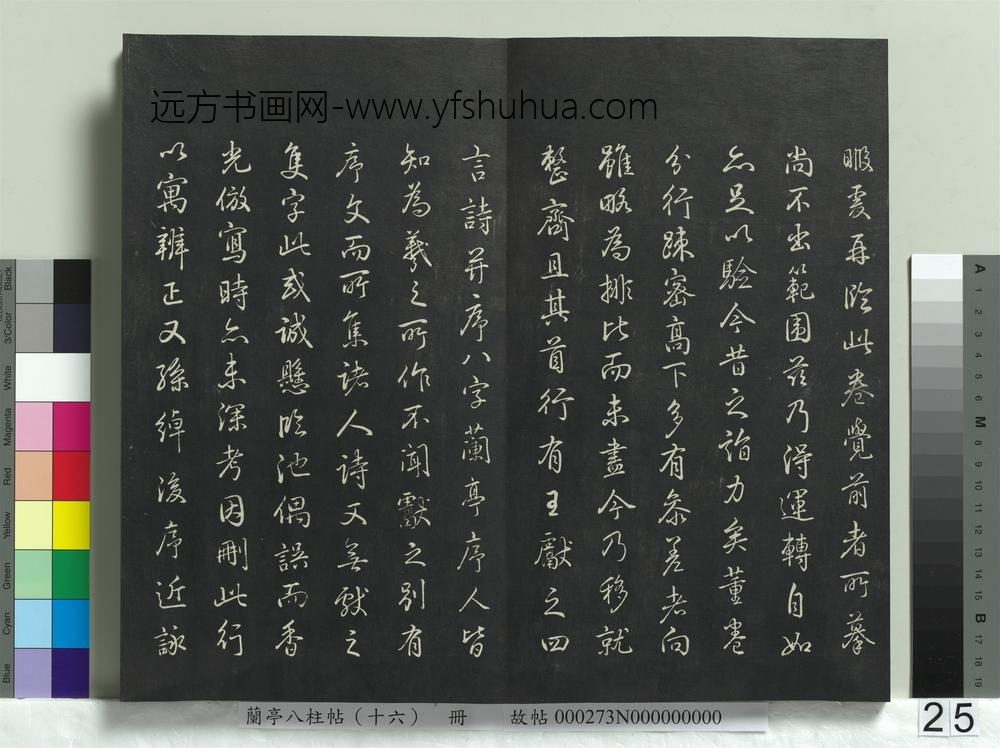 远方书画网-www.yfshuhua.com
暇爰再臨此卷覺前者所摹
尚不出範圍茲乃得運轉自如
亦足以驗今昔之詣力矣董卷
分行疎密高下多有叅差者向
雖略為排比而未盡今乃移就
整齊且其首行有王獻之四
言詩并序八字蘭亭序人皆
知為羲之所作不聞獻之別有
序文而所集諸人詩又無獻之
隻字此或誠懸臨池偶誤而香
光倣寫時亦未深考因刪此行
以寓辨正又孫綽後序近詠
蘭亭八柱帖（十六） 冊 故帖 000273N000000000
25
Black
3/Color
White
Magenta
Red
Yellow
Green
Cyan
Blue
A 1 2 3 4 5 6 M 8 9 10 11 12 13 14 15 B 17 18 19